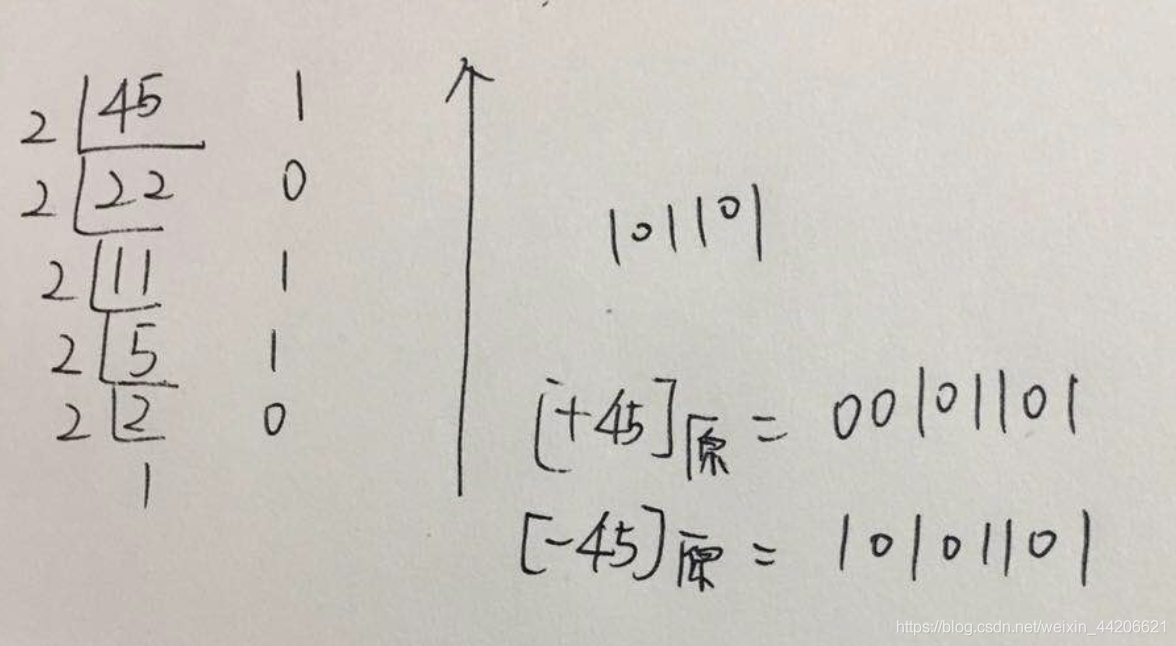 2 45 1
2 22 0
2 11 1
2 5 1
2 2 0
1
101101
[+45]原 = 00101101
[-45]原 = 10101101
https://blog.csdn.net/weixin_44206621